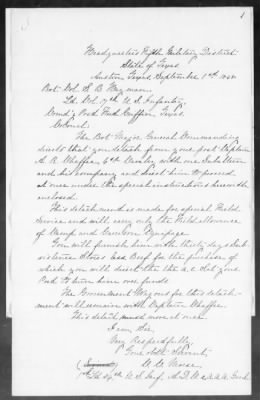 Headquarters Fifth Military District
State of Texas
Austin Texas, September 1st
Bvt. Col. S. B. Hayman
Lt. Col. 17th U.S. Infantry
Comd'g Post Fort Griffin, Texas.
Colonel:
The Bvt. Major General Commanding
directs that you detach from your post Captain
A. R. Chaffee, 6th Cavalry with one Subaltern
and his company and direct him to proceed
at once under the special instructions herewith
enclosed.
This detachment is made for special Field
Service and will carry only the Field allowance
of Camp and Garrison Equipage.
You will furnish him with thirty days Sub-
sistence Stores less Beef for the purchase of
which you will direct the A.C.S. of your
Post to turn over funds.
The Government Wagons for this detach-
ment will remain with Captain Chaffee.
This detachment move at once.
I am, Sir,
Very Respectfully
Your Obt. Servant,
(Signed)